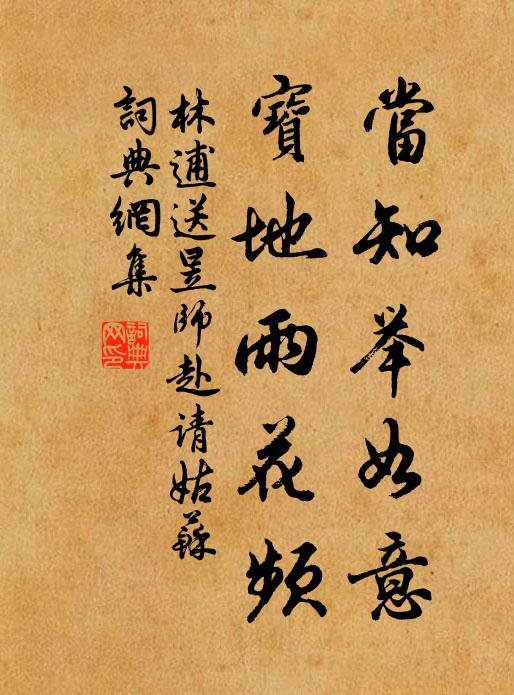 當知举如意
寶地雨花頻
林逋送昱師赴请姑蘇
詞典網集
詞典网印